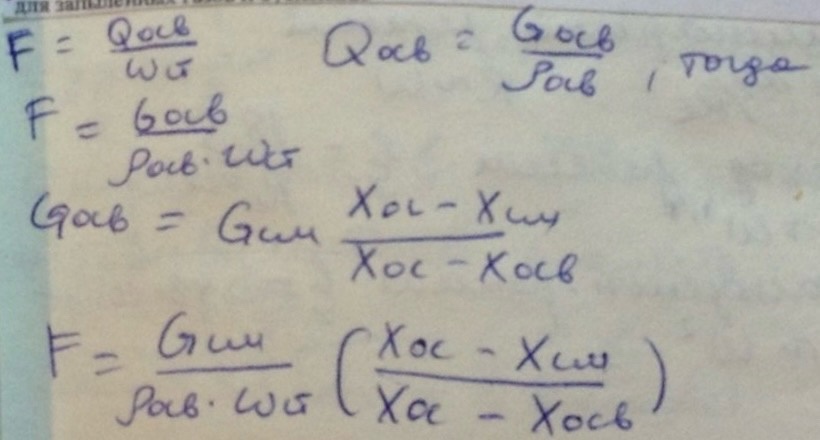 для запыленных газов
F = Qосв / wст Qосв = Gосв / ρосв , тогда
F = Gосв / (ρосв · wст)
Gосв = Gсм (Xос - Xсм) / (Xос - Xосв)
F = Gсм / (ρосв · wст) ((Xос - Xсм) / (Xос - Xосв))